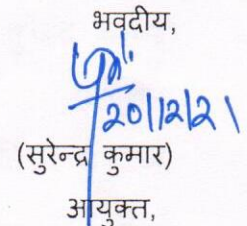 भवदीय,
20/12/21
(सुरेन्द्र कुमार)
आयुक्त,